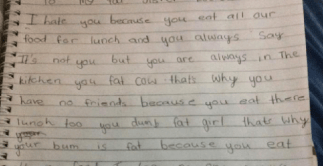 I hate you because you eat all our
food for lunch and you always Say
It's not you but you are always in The
kitchen you fat cow thats why you
have no friends because you eat there
lunch too you dunb fat girl thats why
your bum is fat because you eat